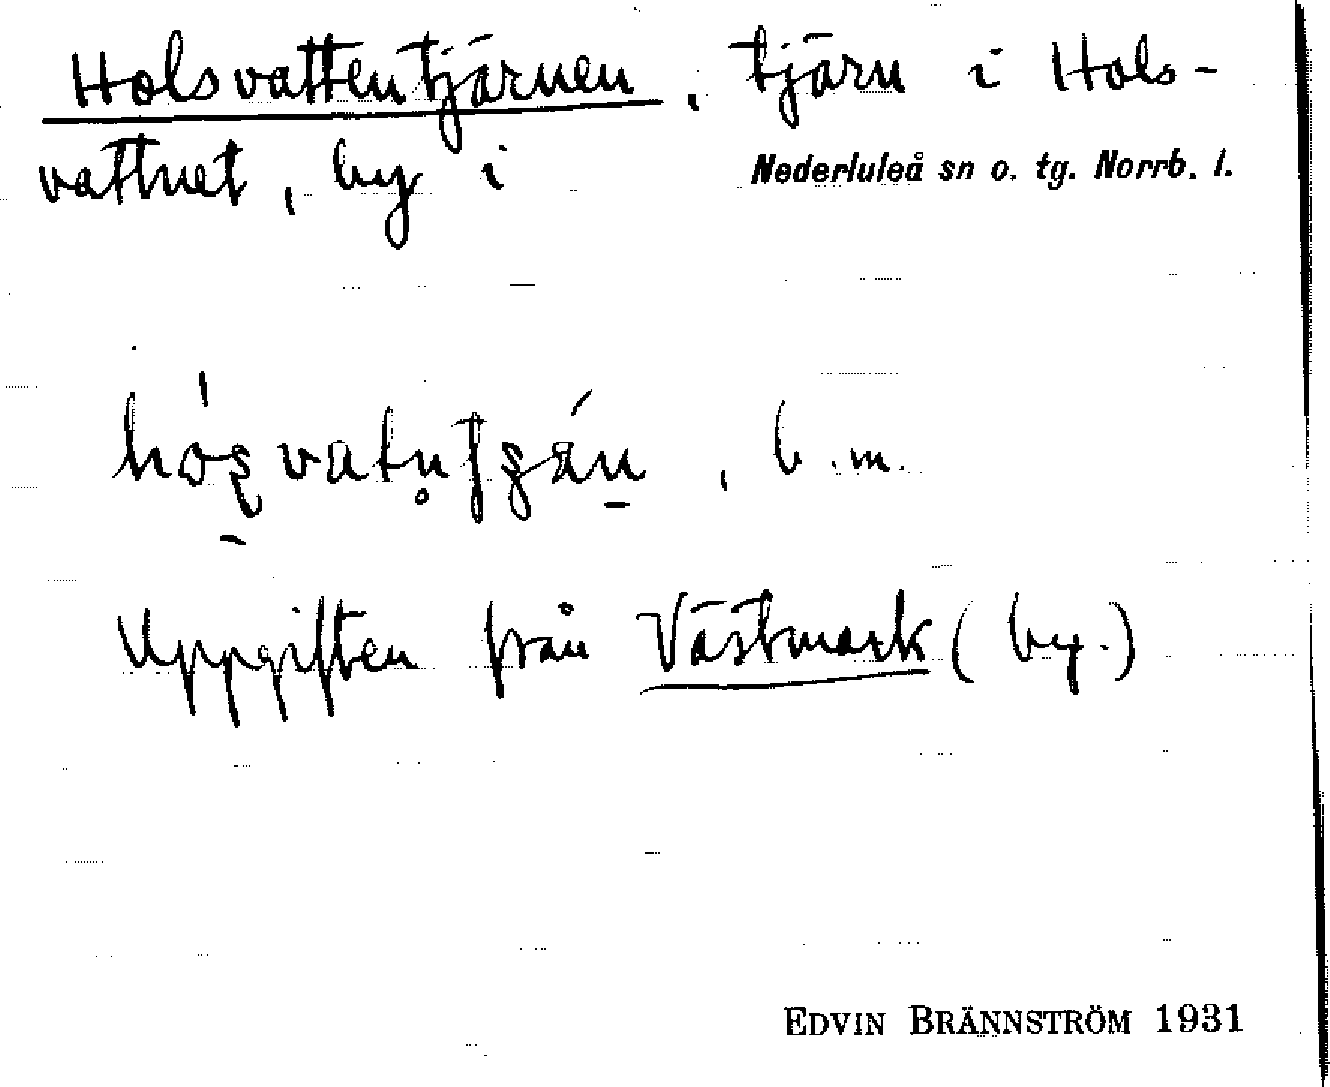 Holsvattentjärnen, tjärn i Hols-
vattnet, by i Nederluleå sn o. tg. Norrb. l.
, b.m.
Uppgiften från Västmark (by.)
EDVIN BRÄNNSTRÖM 1931